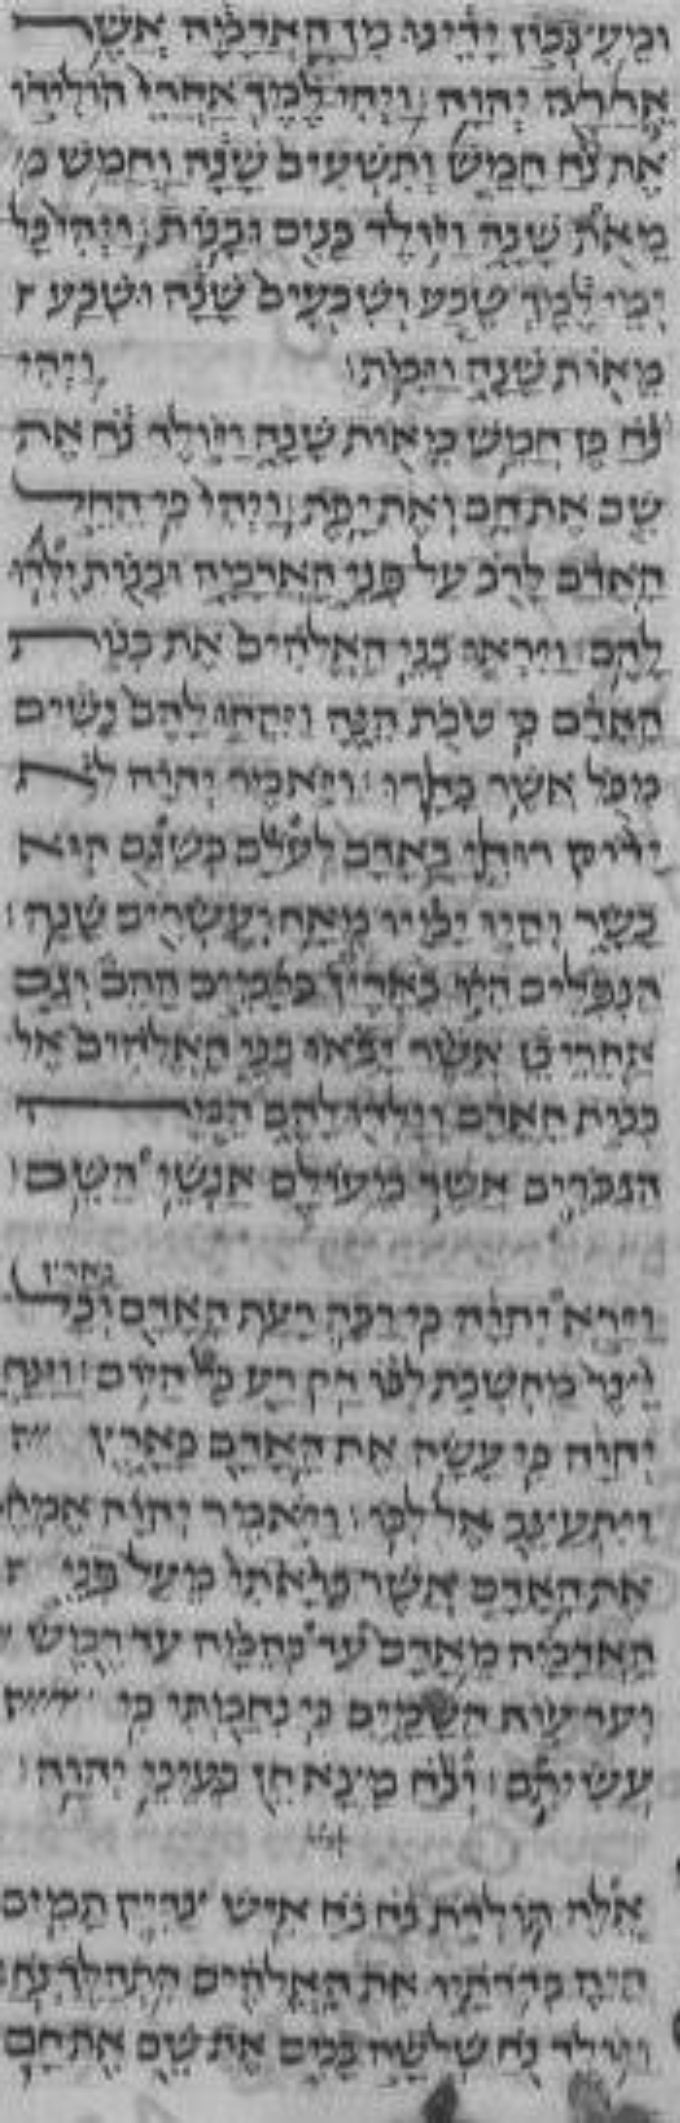 ומעצבון ידינו מן האדמה אשר
אררה יהוה ויהי למך אחרי הולידו
את נח חמש ותשעים שנה וחמש מ
מאת שנה ויולד בנים ובנות ויהי כל
ימי למך שבע ושבעים שנה ושבע
מאות שנה וימת׃ ויהי
נח בן חמש מאות שנה ויולד נח את
שם את חם ואת יפת׃ ויהי כי החל
האדם לרב על פני האדמה ובנות ילדו
להם׃ ויראו בני האלהים את בנות
האדם כי טבת הנה ויקחו להם נשים
מכל אשר בחרו׃ ויאמר יהוה לא
ידון רוחי באדם לעלם בשגם הוא
בשר והיו ימיו מאה ועשרים שנה׃
הנפלים היו בארץ בימים ההם וגם
אחרי כן אשר יבאו בני האלהים אל
בנות האדם וילדו להם המה
הגברים אשר מעולם אנשי השם׃
בארץ
וירא יהוה כי רבה רעת האדם וכל
יצר מחשבת לבו רק רע כל היום׃ וינחם
יהוה כי עשה את האדם בארץ
ויתעצב אל לבו׃ ויאמר יהוה אמחה
את האדם אשר בראתי מעל פני
האדמה מאדם עד בהמה עד רמש
ועד עוף השמים כי נחמתי כי
עשיתם׃ ונח מצא חן בעיני יהוה׃
אלה תולדת נח נח איש צדיק תמים
היה בדרתיו את האלהים התהלך נח
ויולד נח שלשה בנים את שם את חם